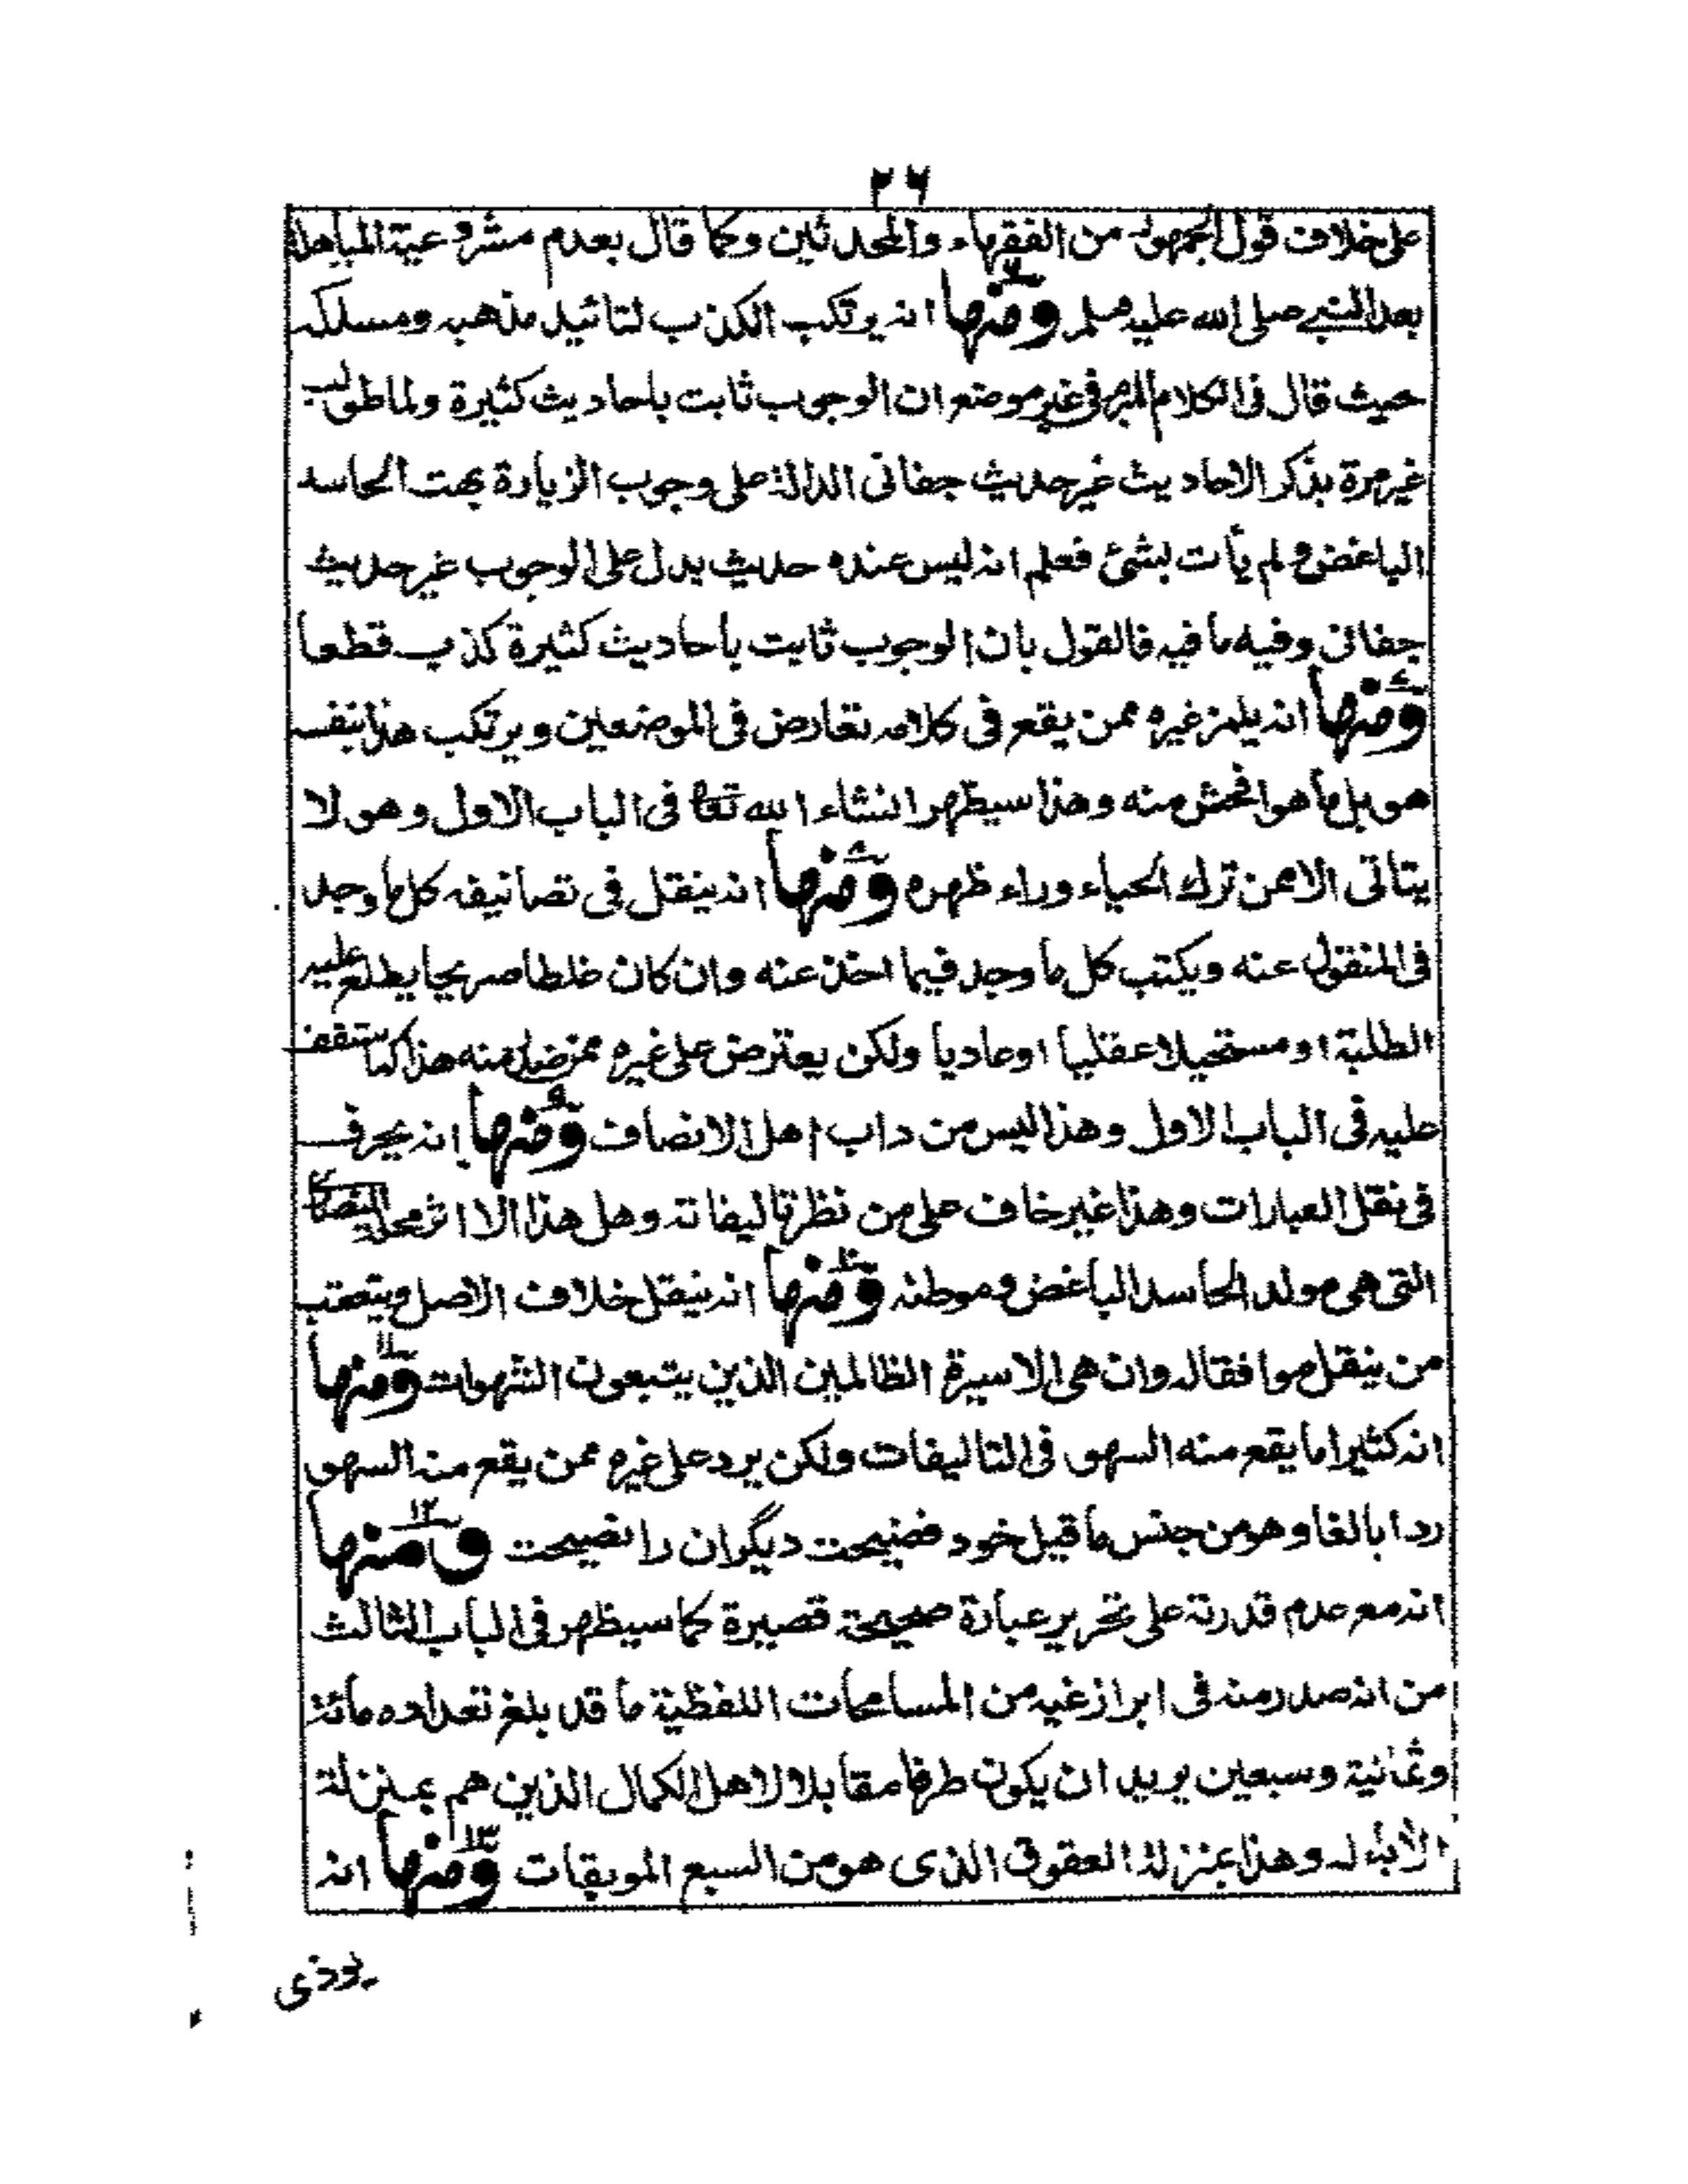 ٢٦
على خلاف قول الجمهور من الفقهاء والمحدثين وكما قال بعدم مشروعية المباهلة
بعد النبي صلى الله عليه وسلم ومنها انه يرتكب الكذب لتائيد مذهبه ومسلكه
حيث قال فى الكلام المبرم فى غير موضع ان الوجوب ثابت باحاديث كثيرة ولما طولب
غير مرة بذكر الاحاديث غير حديث جفانى الدالة على وجوب الزيارة بهت الحاسد
الباغض ولم يأت بشئ فعلم انه ليس عنده حديث يدل على الوجوب غير حديث
جفانى وفيه ما فيه فالقول بان الوجوب ثابت بأحاديث كثيرة كذب قطعا
ومنها انه يلمز غيره ممن يقع فى كلامه تعارض فى الموضعين ويرتكب هذا بنفسه
هو بل ما هو افحش منه وهذا سيظهر انشاء الله تعا فى الباب الاول وهو لا
يتاتى الا ممن ترك الحياء وراء ظهره ومنها انه ينقل فى تصانيفه كل ما وجد
فى المنقول عنه ويكتب كل ما وجد فيما اخذ عنه وان كان غلطا صريحا يطلع عليه
الطلبة او مستحيلا عقليا او عاديا ولكن يعترض على غيره ممن صدر منه هذا كما ستقف
عليه فى الباب الاول وهذا ليس من داب اهل الانصاف ومنها انه يحرف
فى نقل العبارات وهذا غير خاف على من نظر تاليفاته وهل هذا الا اثر محل
التى هى مولد الحاسد الباغض وموطنه ومنها انه ينقل خلاف الاصل ويتعقب
من ينقل موافقا له وان هى الا سيرة الظالمين الذين يتبعون الشهوات ومنها
انه كثيرا ما يقع منه السهو فى التاليفات ولكن يرد على غيره ممن يقع منه السهو
ردا بالغا وهو من جنس ما قيل خود فضيحت ديگران را نصيحت ومنها
انه مع عدم قدرته على تحرير عبارة صحيحة قصيرة كما سيظهر فى الباب الثالث
من انه صدر منه فى ابراز غيه من المسامحات اللفظية ما قد بلغ تعداده مائة
وثمانية وسبعين يريد ان يكون طرفا مقابلا لاهل الكمال الذين هم بمنزلة
الأباء له وهذا بمنزلة العقوق الذى هو من السبع الموبقات ومنها انه
يوذى